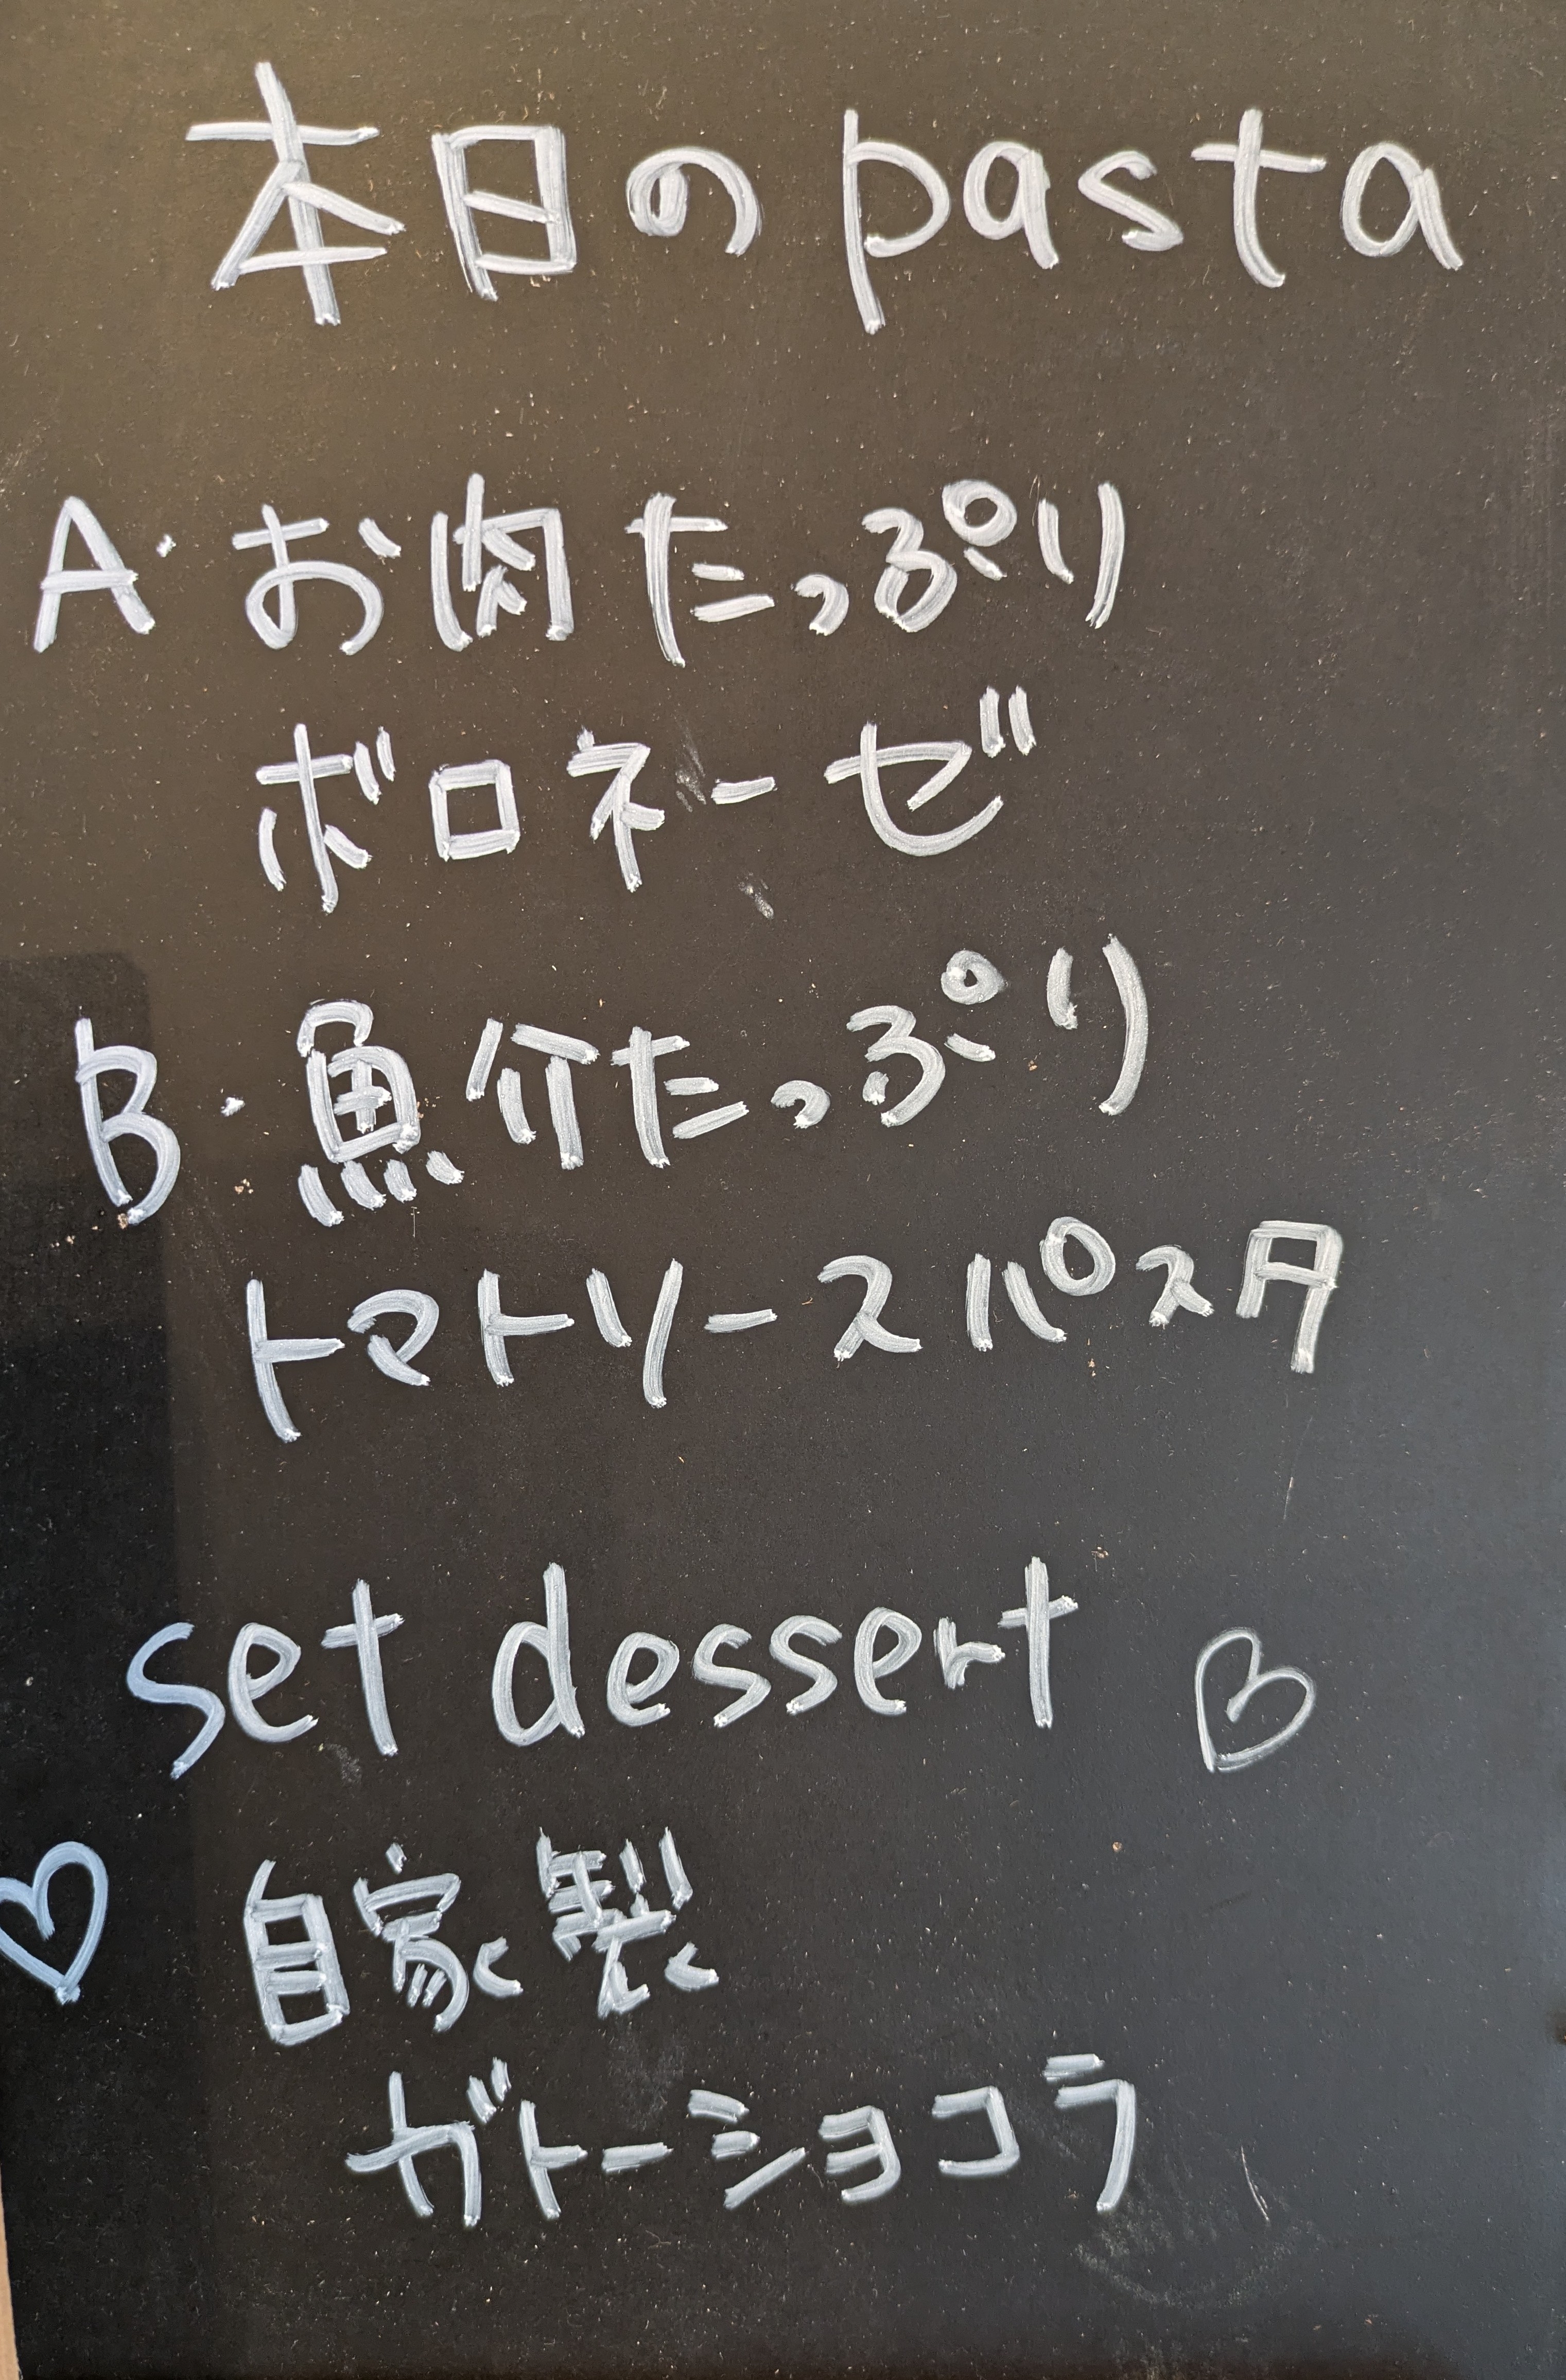 本日のpasta
A・お肉たっぷり
ボロネーゼ
B・魚介たっぷり
トマトソースパスタ
set dessert ♡
♡ 自家製
ガトーショコラ